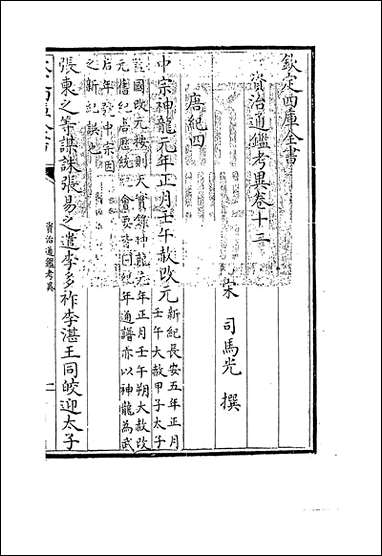 欽定四庫全書
資治通鑑考異卷十三
宋 司馬光 撰
唐紀四
中宗神龍元年正月壬午赦改元
新紀長安五年正月
壬午大赦甲子太子
監國改元按則天實錄神龍元年正月壬午朔大赦改
元舊紀唐歷統紀會要皆同紀年通譜亦以神龍為武
后年號中宗因
之新紀誤也
張柬之等謀誅張易之遣李多祚李湛王同皎迎太子
資治通鑑考異